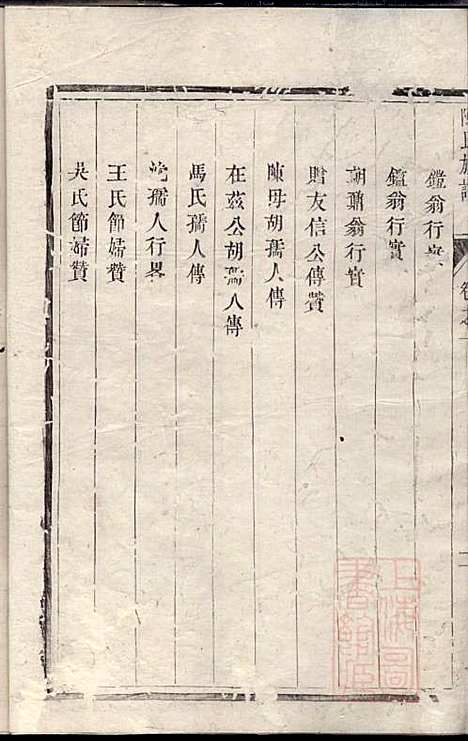 陳氏族譜 卷之
鑑翁行實
鑑翁行實
朝翁行實
贈友信公傳贊
陳母胡孺人傳
在茲公胡孺人傳
馬氏孺人傳
孺人行畧
王氏節婦贊
吳氏節婦贊
上海圖書館藏